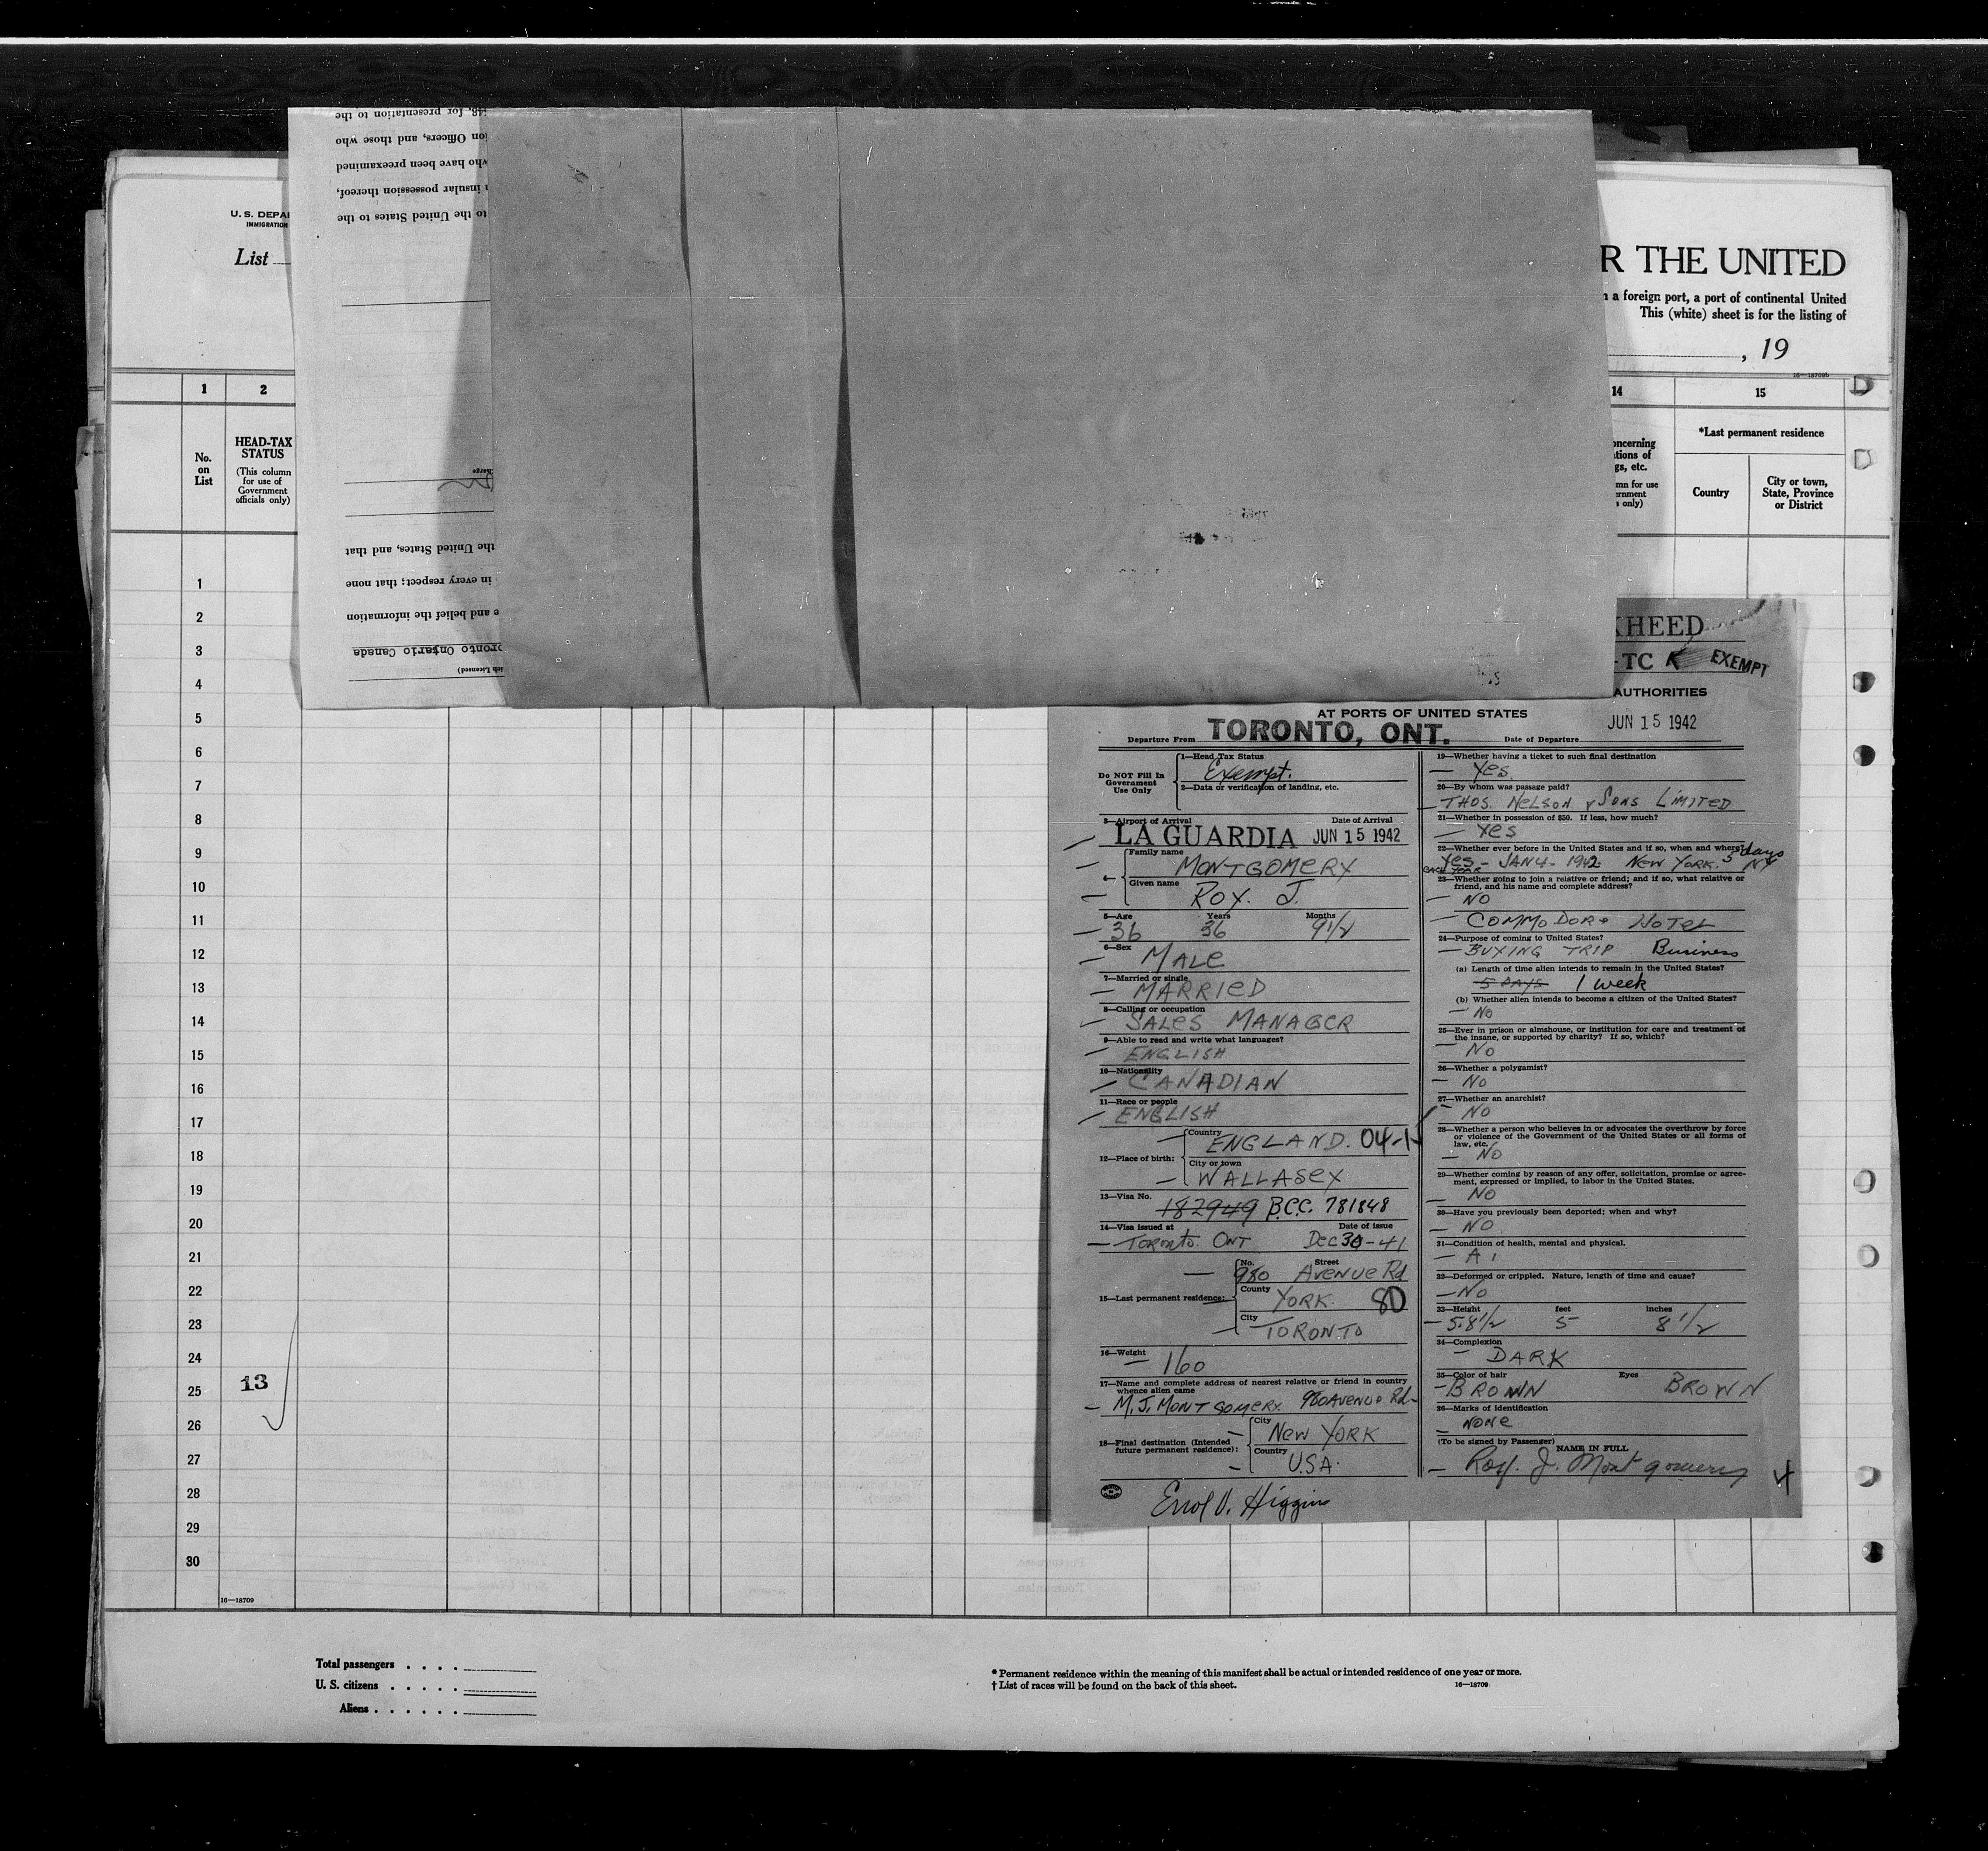 U. S. DEPA
IMMIGRATION
List
48, for presentation to the
ion Officers, and those who
who have been preexamined
insular possession thereof,
to the United States to the
the United States, and that
in every respect; that none
e and belief the information
oronto Ontario Canada
R THE UNITED
a foreign port, a port of continental United
This (white) sheet is for the listing of
, 19
16—18709b
1
2
14
15
No.
on
List
HEAD-TAX
STATUS
(This column
for use of
Government
officials only)
oncerning
tions of
gs, etc.
mn for use
ernment
s only)
*Last permanent residence
Country
City or town,
State, Province
or District
1
2
3
4
5
6
7
8
9
10
11
12
13
14
15
16
17
18
19
20
21
22
23
24
25
13
26
27
28
29
30
16—18709
KHEED
-TC
EXEMPT
AUTHORITIES
AT PORTS OF UNITED STATES
Departure From TORONTO, ONT. Date of Departure JUN 15 1942
Do NOT Fill In
Government
Use Only
1—Head Tax Status
Exempt.
2—Data or verification of landing, etc.
3—Airport of Arrival Date of Arrival
LA GUARDIA JUN 15 1942
4— Family name
MONTGOMERY
Given name
ROY. J.
5—Age Years Months
36 36 9 1/2
6—Sex
MALE
7—Married or single
MARRIED
8—Calling or occupation
SALES MANAGER
9—Able to read and write what languages?
ENGLISH
10—Nationality
CANADIAN
11—Race or people
ENGLISH
12—Place of birth:
Country
ENGLAND. 04-1
City or town
WALLASEY
13—Visa No.
182949 B.C.C. 781848
14—Visa issued at Date of issue
TORONTO. ONT DEC 30-41
15—Last permanent residence:
No. Street
980 AVENUE Rd
County
YORK. 80
City
TORONTO
16—Weight
160
17—Name and complete address of nearest relative or friend in country
whence alien came
M.J. MONTGOMERY. 980 AVENUE Rd-
18—Final destination (Intended
future permanent residence):
City
NEW YORK
Country
U.S.A.
Errol V. Higgins
19—Whether having a ticket to such final destination
Yes.
20—By whom was passage paid?
THOS. NELSON & SONS LIMITED
21—Whether in possession of $50. If less, how much?
YES
22—Whether ever before in the United States and if so, when and where?
YES - JAN 4 - 1942. NEW YORK. 5 days NY
each year
23—Whether going to join a relative or friend; and if so, what relative or
friend, and his name and complete address?
NO
COMMODORE HOTEL
24—Purpose of coming to United States?
BUYING TRIP Business
(a) Length of time alien intends to remain in the United States?
5 DAYS 1 week
(b) Whether alien intends to become a citizen of the United States?
NO
25—Ever in prison or almshouse, or institution for care and treatment of
the insane, or supported by charity? If so, which?
NO
26—Whether a polygamist?
NO
27—Whether an anarchist?
NO
28—Whether a person who believes in or advocates the overthrow by force
or violence of the Government of the United States or all forms of
law, etc.
NO
29—Whether coming by reason of any offer, solicitation, promise or agree-
ment, expressed or implied, to labor in the United States.
NO
30—Have you previously been deported; when and why?
NO
31—Condition of health, mental and physical.
A 1
32—Deformed or crippled. Nature, length of time and cause?
NO
33—Height feet inches
5.8 1/2 5 8 1/2
34—Complexion
DARK
35—Color of hair Eyes
BROWN BROWN
36—Marks of identification
NONE
(To be signed by Passenger) NAME IN FULL
Roy. J. Montgomery
Total passengers . . . .
U. S. citizens . . . . .
Aliens . . . . . .
* Permanent residence within the meaning of this manifest shall be actual or intended residence of one year or more.
† List of races will be found on the back of this sheet.
16—18709